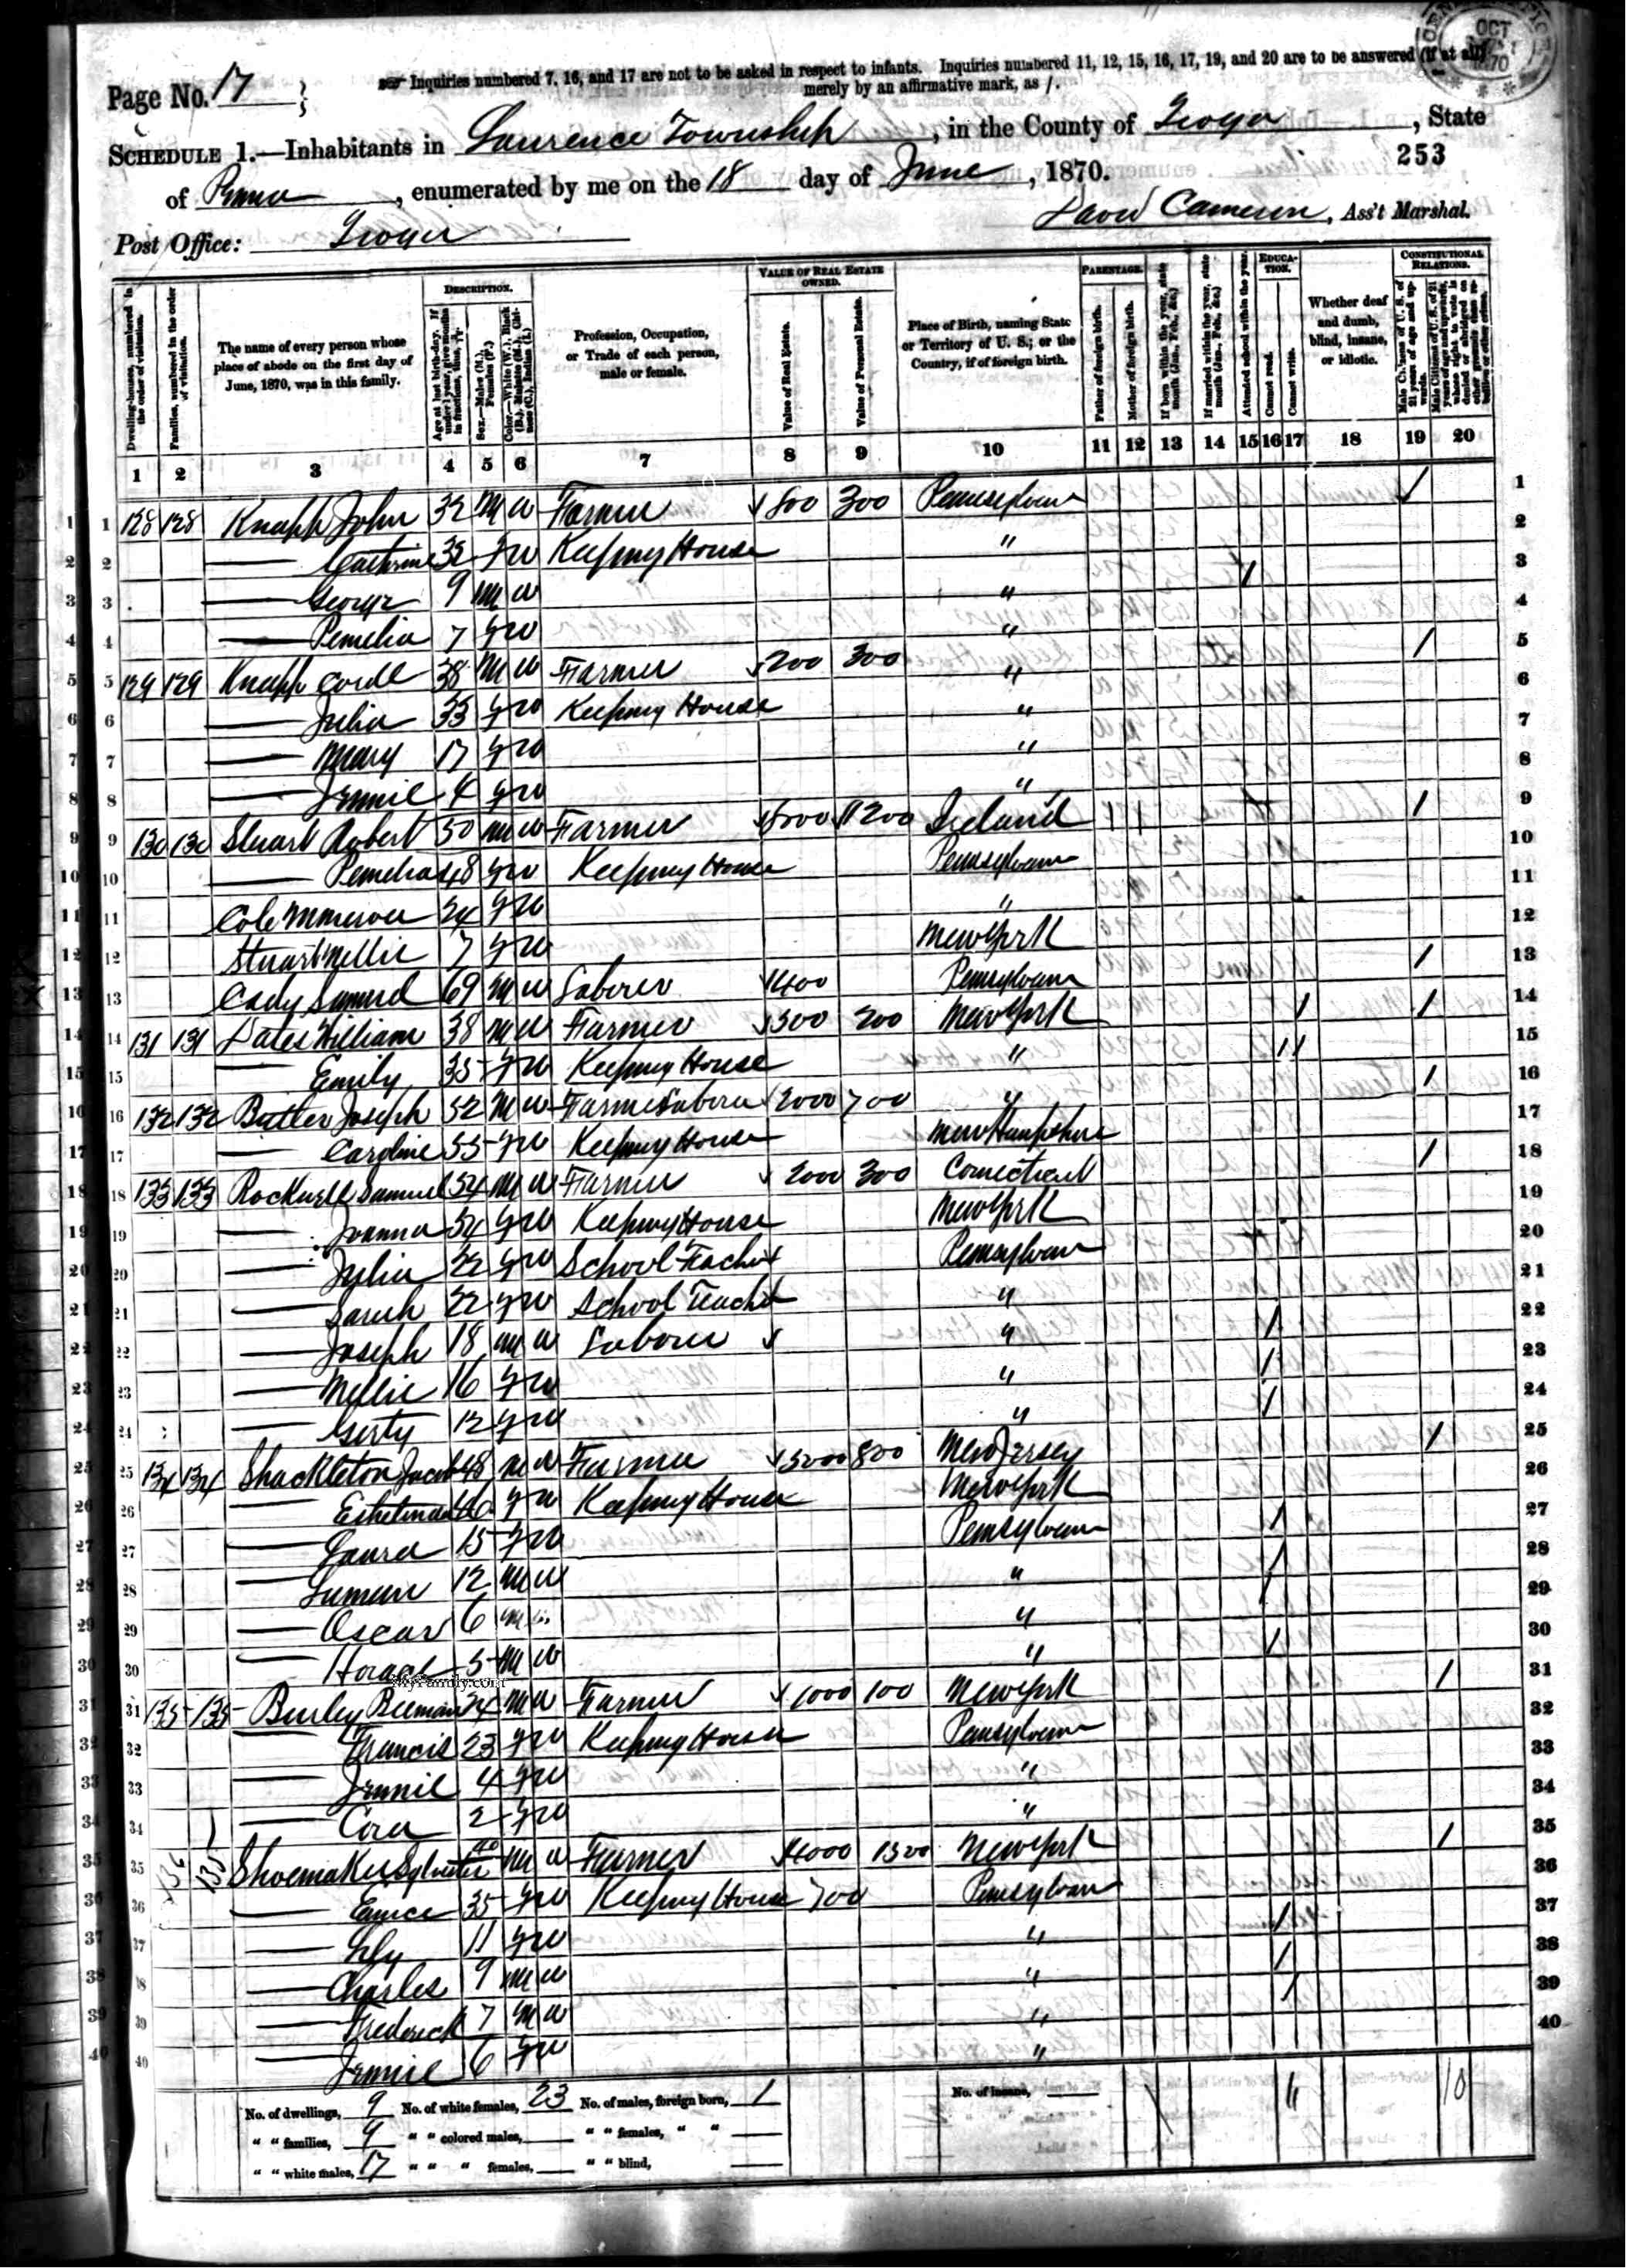 Page No. 17
Inquiries numbered 7, 16, and 17 are not to be asked in respect to infants. Inquiries numbered 11, 12, 15, 16, 17, 19, and 20 are to be answered (if at all)
merely by an affirmative mark, as /.
OCT
SCHEDULE 1.—Inhabitants in Lawrence Township, in the County of Tioga, State
253
of Penna, enumerated by me on the 18 day of June, 1870.
David Cameron, Ass't Marshal.
Post Office: Tioga
Dwelling-houses, numbered in the order of visitation.
Families, numbered in the order of visitation.
The name of every person whose place of abode on the first day of June, 1870, was in this family.
DESCRIPTION.
Age at last birth-day. If under 1 year, give months in fractions, thus,
Sex.—Males (M.), Females (F.)
Color.—White (W.), Black (B.), Mulatto (M.), Chinese (C.), Indian (I.)
Profession, Occupation, or Trade of each person, male or female.
VALUE OF REAL ESTATE OWNED.
Value of Real Estate.
Value of Personal Estate.
Place of Birth, naming State or Territory of U. S.; or the Country, if of foreign birth.
PARENTAGE.
Father of foreign birth.
Mother of foreign birth.
If born within the year, state month (Jan., Feb., &c.)
If married within the year, state month (Jan., Feb., &c.)
Attended school within the year.
EDUCATION.
Cannot read.
Cannot write.
Whether deaf and dumb, blind, insane, or idiotic.
CONSTITUTIONAL RELATIONS.
Male Citizens of U. S. of 21 years of age and upwards.
Male Citizens of U. S. of 21 years of age and upwards, whose right to vote is denied or abridged on other grounds than rebellion or other crime.
1 2 3 4 5 6 7 8 9 10 11 12 13 14 15 16 17 18 19 20
1 128 128 Knapp John 32 M W Farmer 800 300 Pennsylvania / 1
2 — Cathrine 32 F W Keeping House " 2
3 — George 9 M W " / 3
4 — Pemelia 7 F W " 4
5 129 129 Knapp 38 M W Farmer 200 300 " / 5
6 — Julia 33 F W Keeping House " 6
7 — Mary 17 F W " 7
8 — Jennie 4 F W " 8
9 130 130 Stuart Robert 50 M W Farmer 1200 Ireland / / / 9
10 — Pemelia 48 F W Keeping House Pennsylvania 10
11 Cole Minerva 24 F W " 11
12 Stuart Nellie 7 F W New York 12
13 Cady Samuel 69 M W Laborer 400 Pennsylvania / 13
14 131 131 Dates William 38 M W Farmer 300 200 New York / / 14
15 — Emily 35 F W Keeping House " / / 15
16 132 132 Butler Joseph 52 M W Farm Laborer 2000 700 " / 16
17 — Caroline 55 F W Keeping House New Hampshire 17
18 133 133 Rockwell Samuel 54 M W Farmer 2000 300 Conecticut / 18
19 — Joanna 54 F W Keeping House New York 19
20 — Julia 22 F W School Teacher Pennsylvania 20
21 — Sarah 22 F W School Teacher " 21
22 — Joseph 18 M W Laborer " / 22
23 — Nellie 16 F W " / 23
24 — Gerty 12 F W " / 24
25 134 134 Shackleton Jacob 48 M W Farmer 3000 800 New Jersey / 25
26 — F W Keeping House New York 26
27 — Laura 15 F W Pennsylvania / 27
28 — Luman 12 M W " / 28
29 — Oscar 6 M W " / 29
30 — Horace 5 M W " / 30
31 135 135 Burley Beeman 24 M W Farmer 1000 100 New York / 31
32 — Francis 23 F W Keeping House Pennsylvania 32
33 — Jennie 4 F W " 33
34 — Cora 2 F W " 34
35 136 135 Shoemaker Sylvester 40 M W Farmer 4000 1300 New York / 35
36 — Eunice 35 F W Keeping House 700 Pennsylvania 36
37 — Lily 11 F W " / 37
38 — Charles 9 M W " / 38
39 — Frederick 7 M W " / 39
40 — Jennie 6 F W " 40
SkyFamily.com
No. of dwellings, 9 No. of white females, 23 No. of males, foreign born, 1 No. of insane, 10
" " families, 9 " " colored males, " " females, " "
" " white males, 17 " " " females, " " blind,